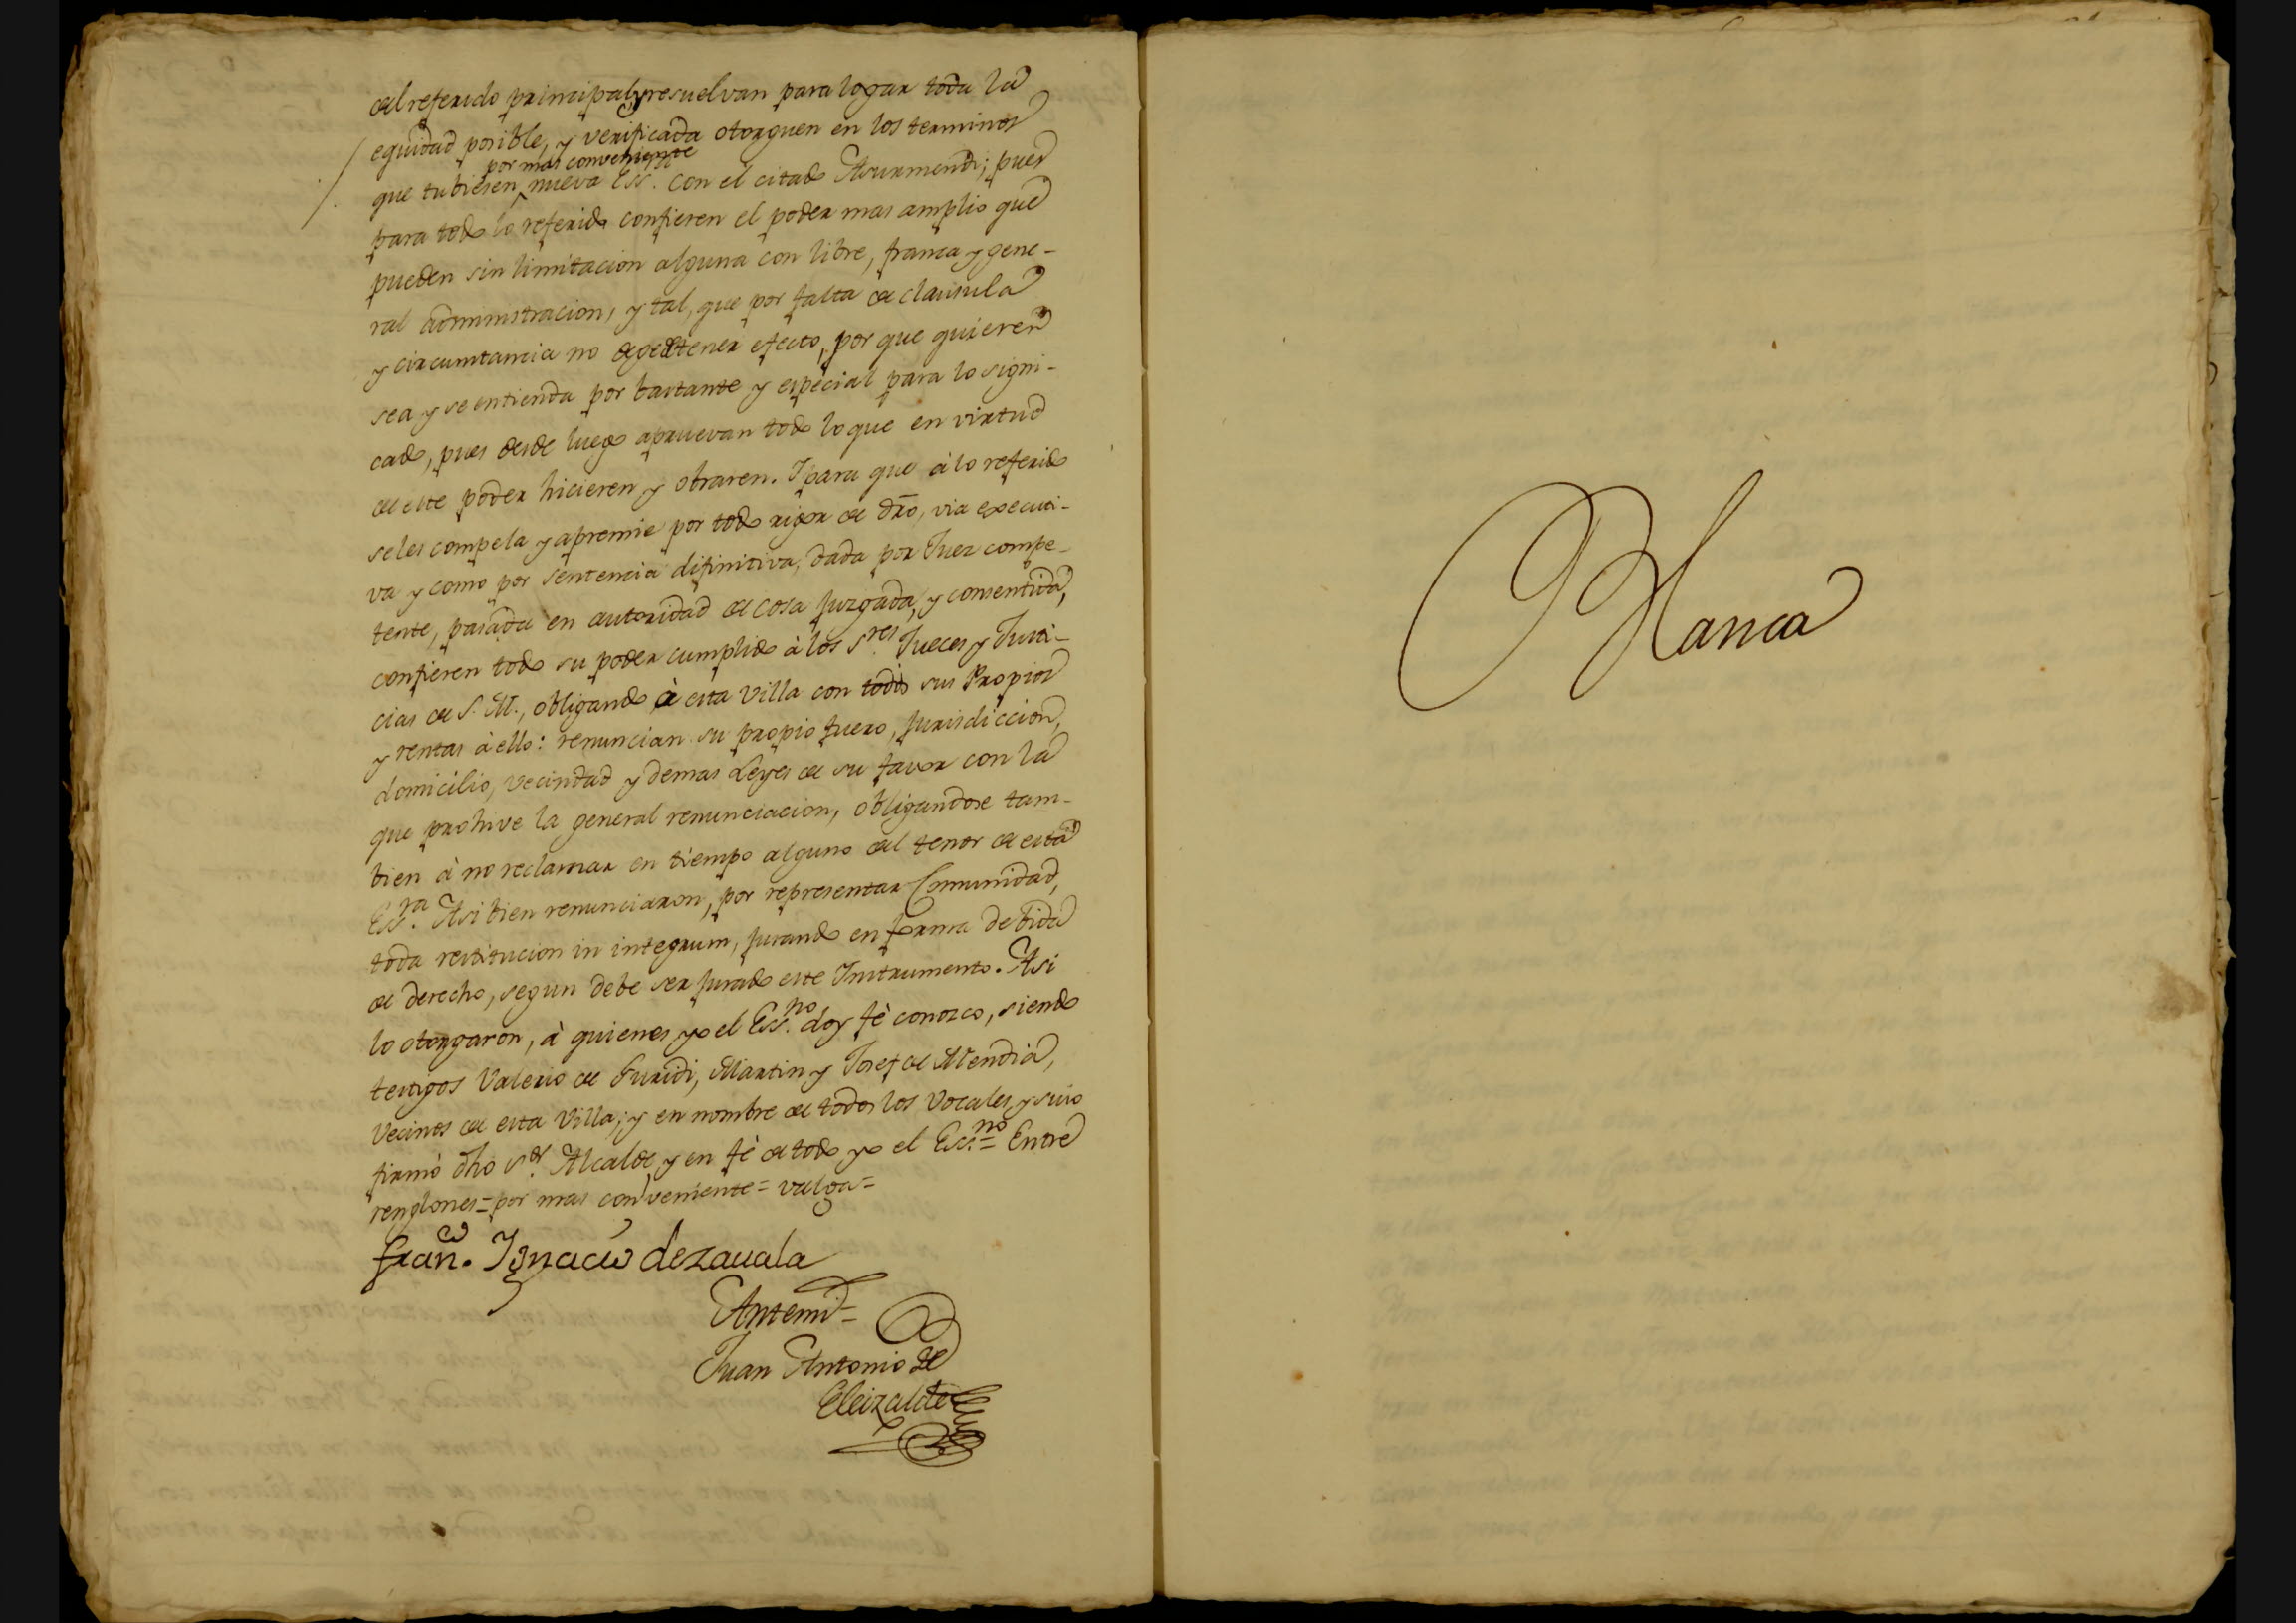 del referido principal, y resuelvan para logar toda la
equidad posible, y verificada otorguen en los terminos
por mas conveniente
que tubiesen nueva Ess. con el citado Asurmendi; pues
para todo lo referido confieren el poder mas amplio que
pueden sin limitacion alguna con libre, franca y gene-
ral administracion, y tal, que por falta de clausula
y circunstancia no dege de tener efecto, por que quieren
sea y se entienda por bastante y especial para lo signi-
cado, pues desde luego apruevan todo lo que en virtud
de este poder hicieren y obraren. Y para que à lo referido
se les compela y apremie por todo rigor de dro, via executi-
va y como por sentencia difinitiva, dada por Juez compe-
tente, pasada en autoridad de cosa juzgada, y consentida,
confieren todo su poder cumplido à los S.res Jueces y Justi-
cias de S. M., obligando à esta Villa con todos sus Propios
y rentas à ello: renuncian su propio fuero, jurisdiccion,
domicilio, vecindad y demas Leyes de su favor con la
que prohive la general renunciacion, obligandose tam-
bien à no reclamar en tiempo alguno del tenor de esta
Ess.ra Asi bien renunciaron, por representar Comunidad,
toda restitucion in integrum, jurando en forma debida
de derecho, segun debe ser jurado este Instrumento. Asi
lo otorgaron, à quienes yo el Ess.no doy fè conozco, siendo
testigos Valerio de Iuridi, Martin y Josef de Mendia,
Vecinos de esta Villa; y en nombre de todos los Vocales, y suio
firmò dho S.or Alcalde, y en fè de todo yo el Ess.no = Entre
renglones = por mas conveniente = valga =
Fran.co Ignacio de Zavala
Antemi =
Juan Antonio de
Eleizalde
Blanca